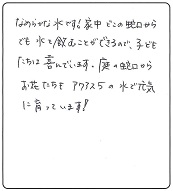 なめらかな水です！家中どこの蛇口から
でも水を飲むことができるので、子ども
たちは喜んでいます。庭の蛇口から
お花たちも アクアス5の水で元気
に育っています！